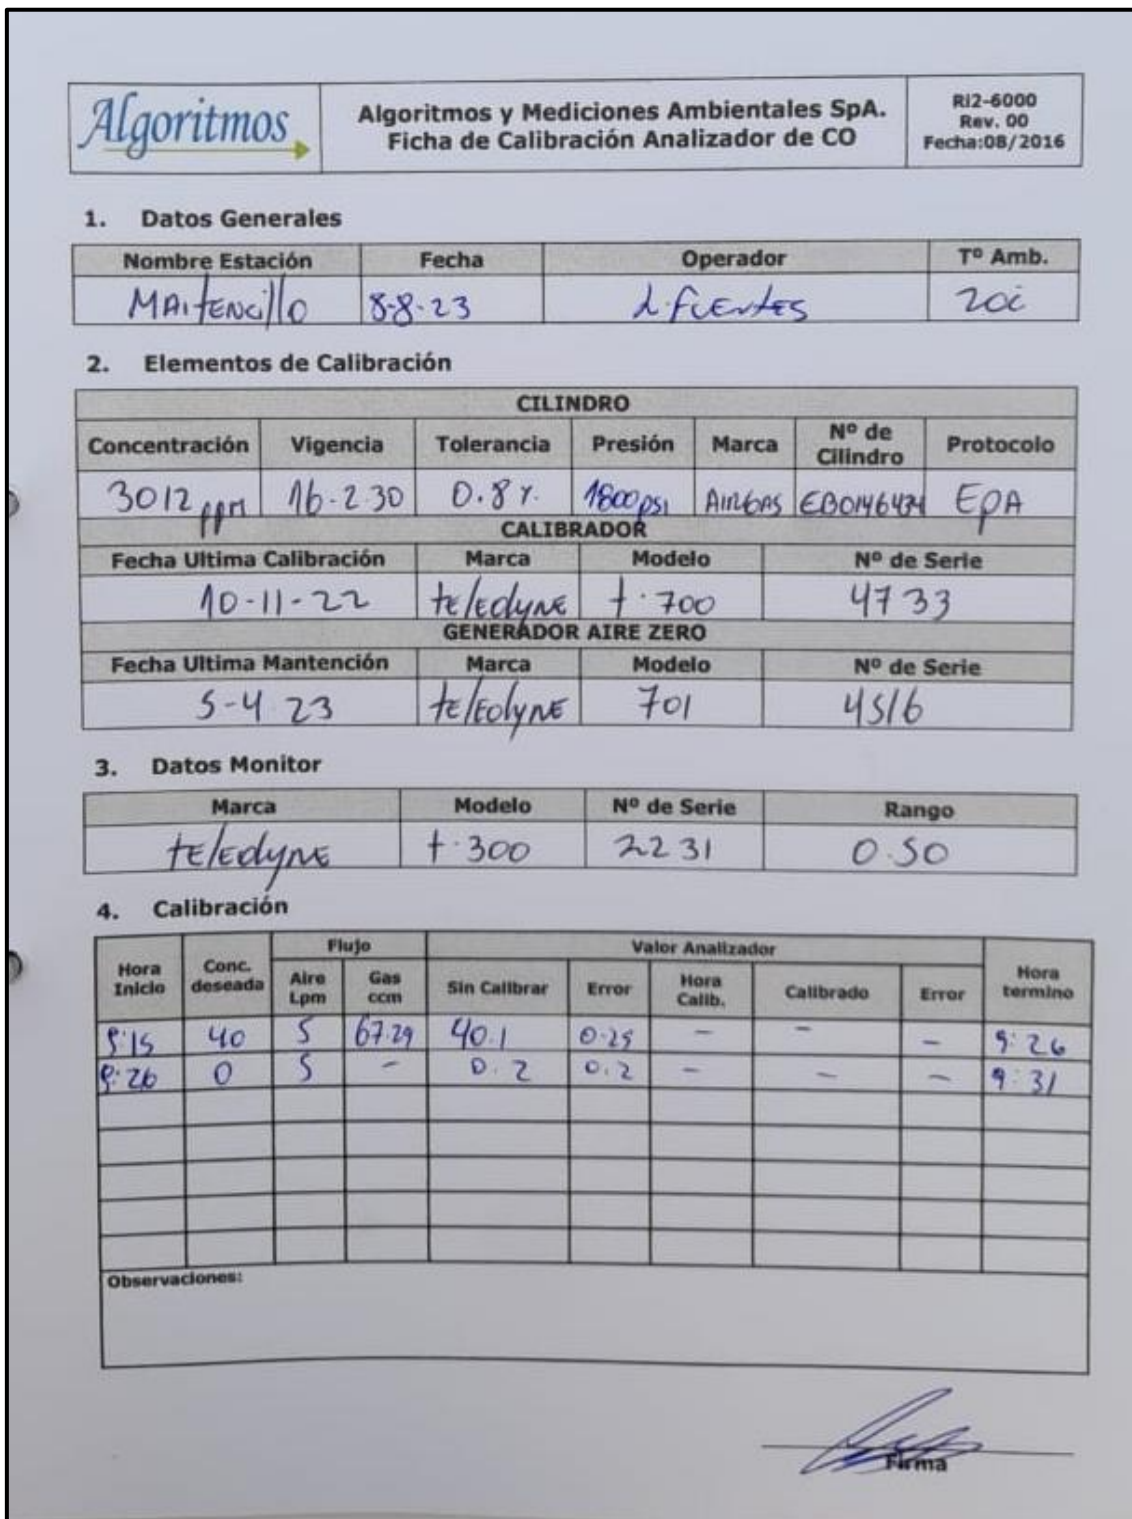 Algoritmos
Algoritmos y Mediciones Ambientales SpA.
Ficha de Calibración Analizador de CO
RI2-6000
Rev. 00
Fecha:08/2016
1. Datos Generales
Nombre Estación Fecha Operador Tº Amb.
MAitENcillo 8-8-23 L. FUENTES 20
2. Elementos de Calibración
CILINDRO
Concentración Vigencia Tolerancia Presión Marca Nº de Cilindro Protocolo
3012 ppm 16-2-30 0.8 %. 1800 psi AIRGAS EB0146434 EPA
CALIBRADOR
Fecha Ultima Calibración Marca Modelo Nº de Serie
10-11-22 teledyne t.700 4733
GENERADOR AIRE ZERO
Fecha Ultima Mantención Marca Modelo Nº de Serie
5-4 23 teledyne 701 4516
3. Datos Monitor
Marca Modelo Nº de Serie Rango
teledyne t.300 2231 0.50
4. Calibración
Flujo Valor Analizador
Hora Inicio Conc. deseada Aire Lpm Gas ccm Sin Calibrar Error Hora Calib. Calibrado Error Hora termino
9:15 40 5 67.29 40.1 0.25 - - - 9:26
9:26 0 5 - 0.2 0.2 - - - 9:31
Observaciones:
Firma